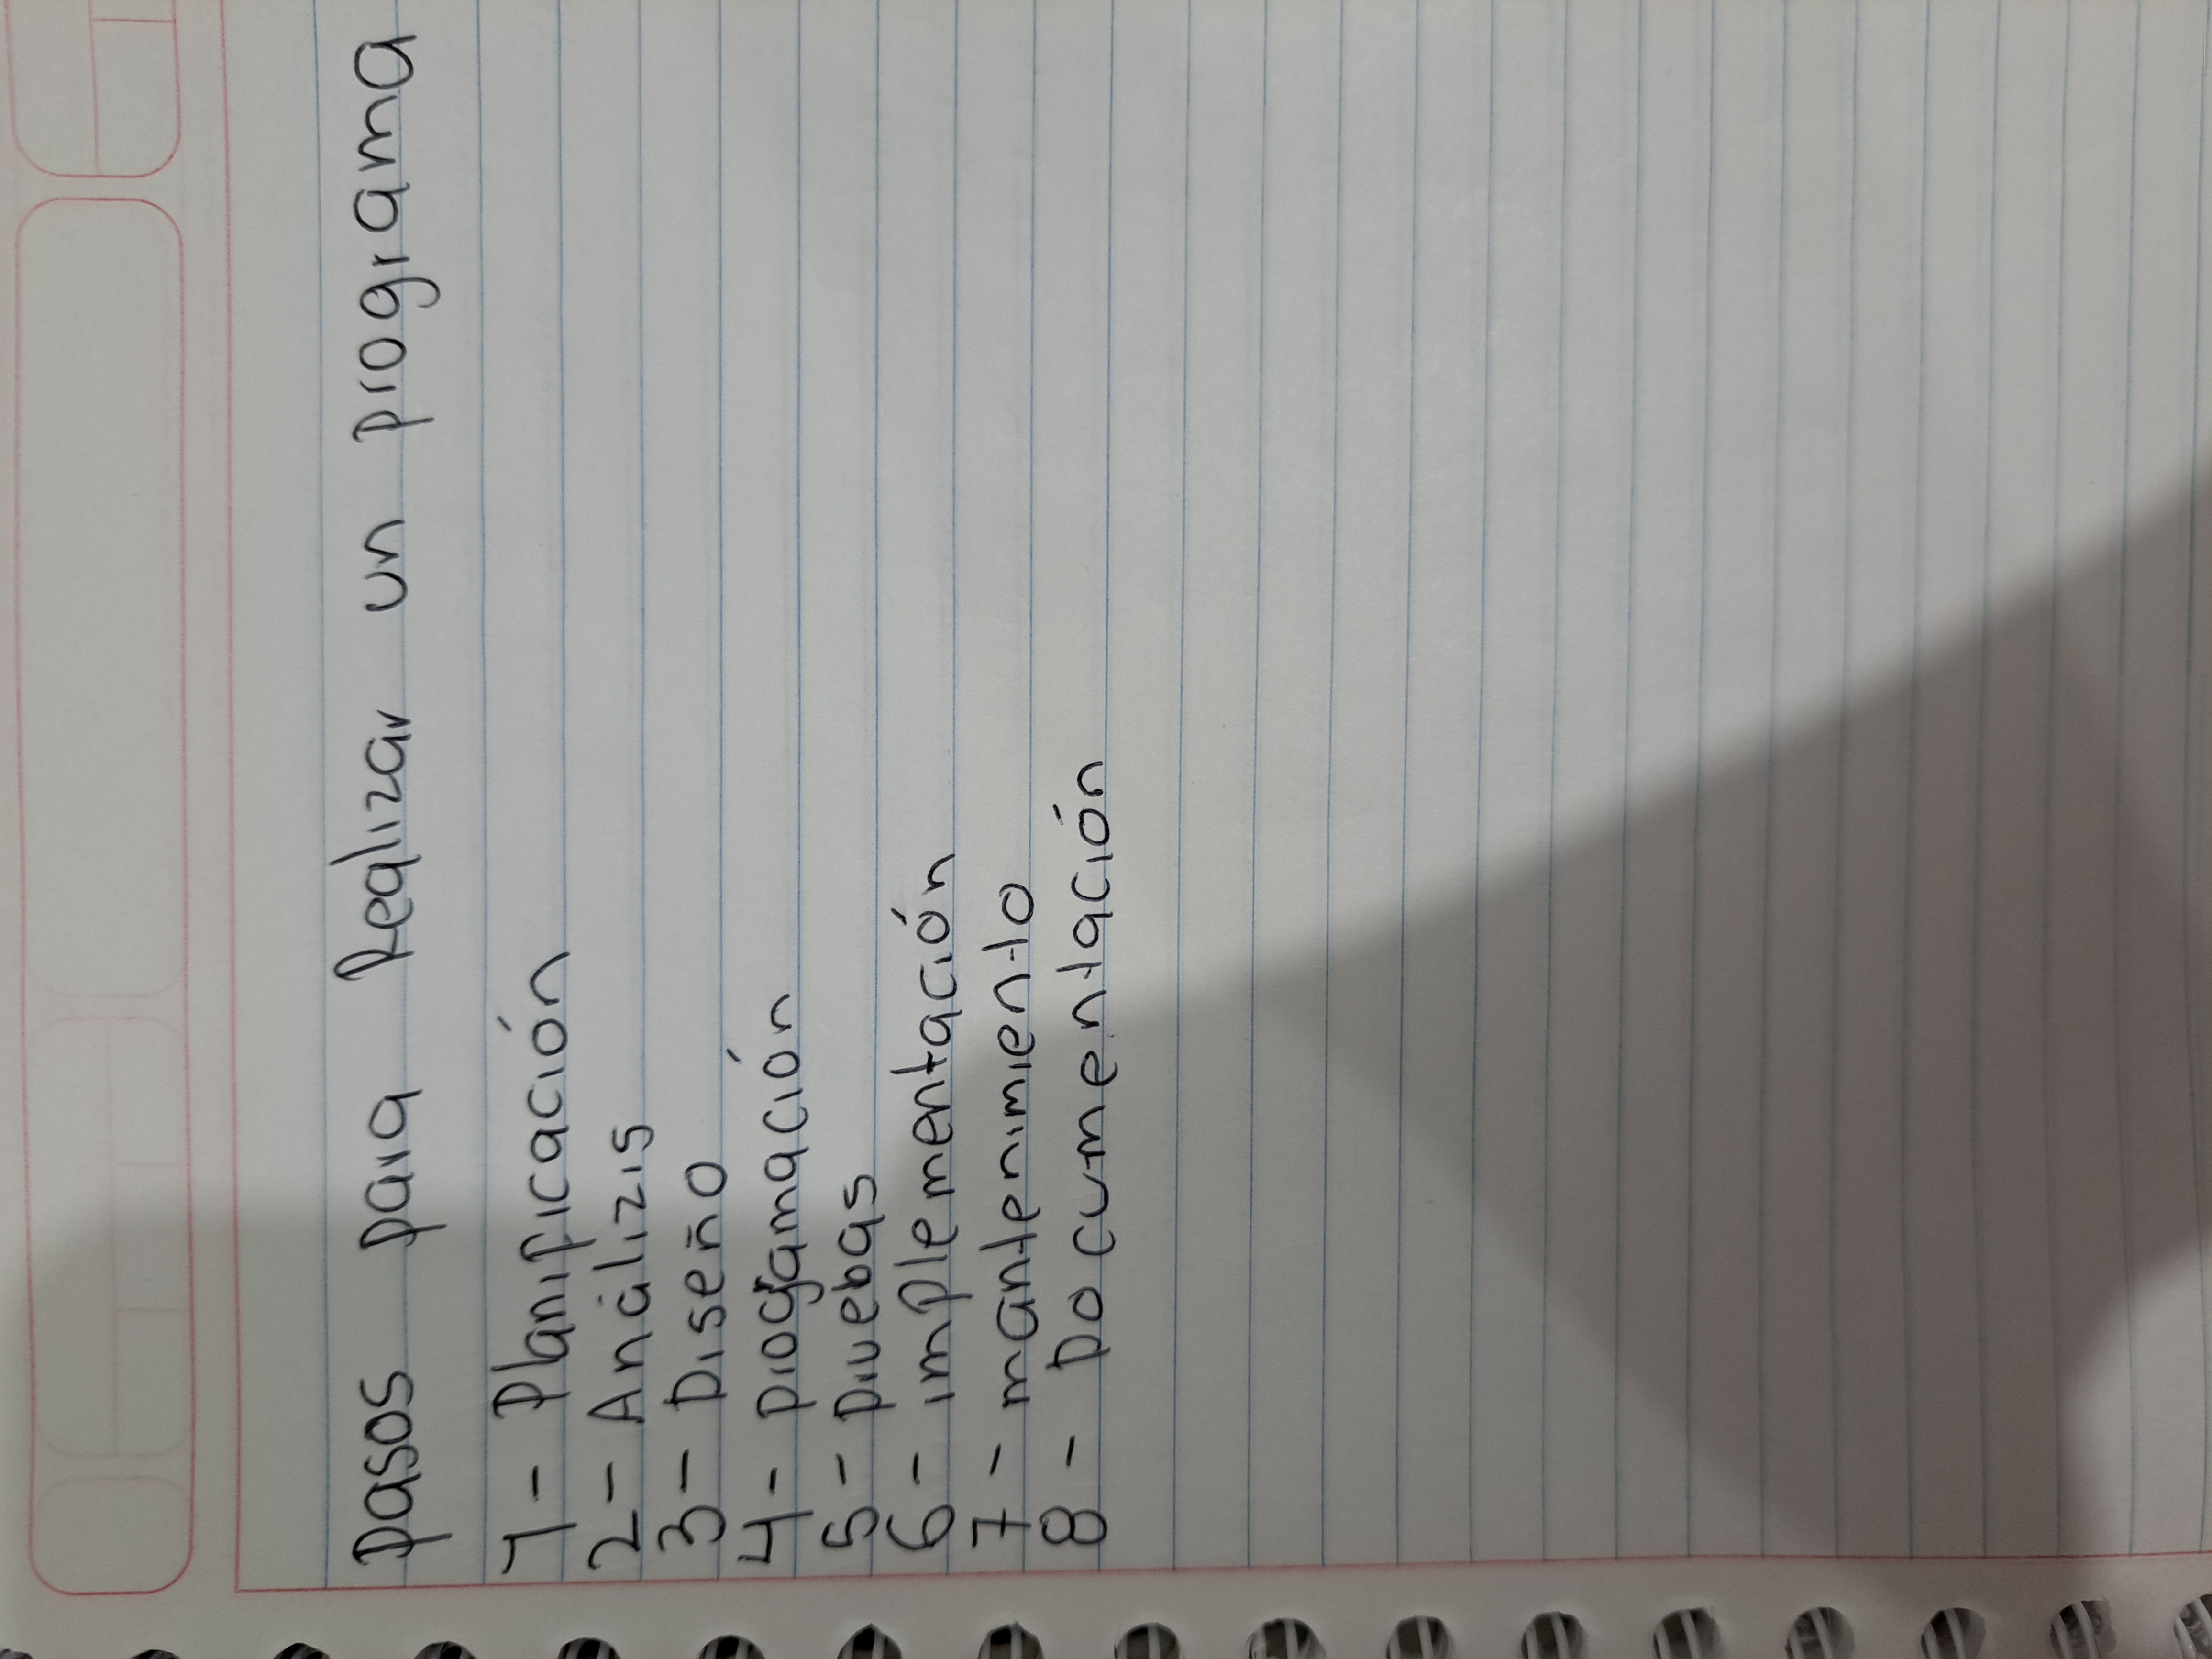 Pasos para Realizar un programa
1 - Planificación
2 - Análizis
3 - Diseño
4 - programación
5 - pruebas
6 - implementación
7 - mantenimiento
8 - Documentación